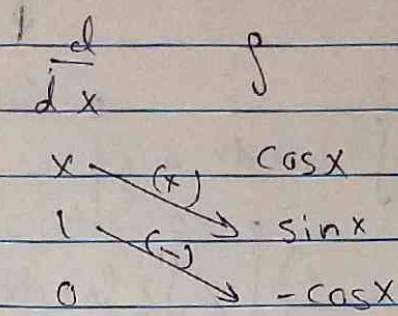 d/dx ∫
x (+) cosx
1 (-) sinx
0 -cosx